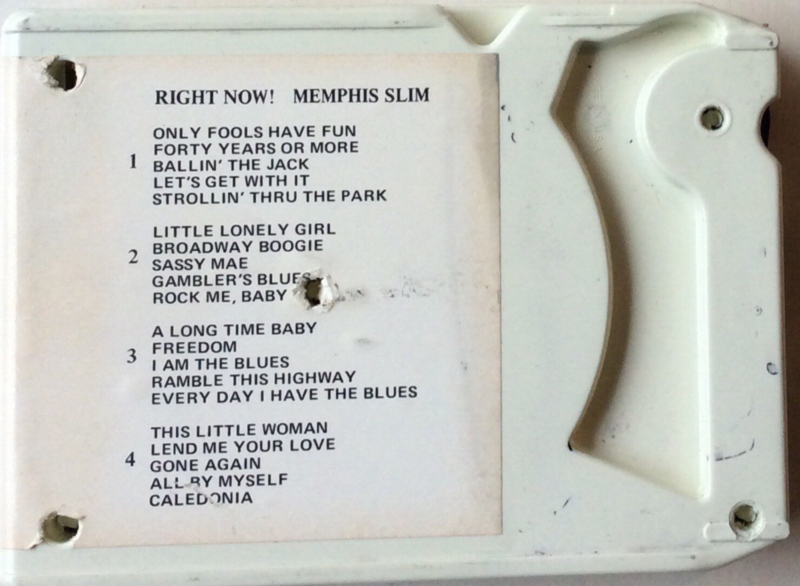 RIGHT NOW! MEMPHIS SLIM
1
ONLY FOOLS HAVE FUN
FORTY YEARS OR MORE
BALLIN' THE JACK
LET'S GET WITH IT
STROLLIN' THRU THE PARK
2
LITTLE LONELY GIRL
BROADWAY BOOGIE
SASSY MAE
GAMBLER'S BLUES
ROCK ME, BABY
3
A LONG TIME BABY
FREEDOM
I AM THE BLUES
RAMBLE THIS HIGHWAY
EVERY DAY I HAVE THE BLUES
4
THIS LITTLE WOMAN
LEND ME YOUR LOVE
GONE AGAIN
ALL BY MYSELF
CALEDONIA